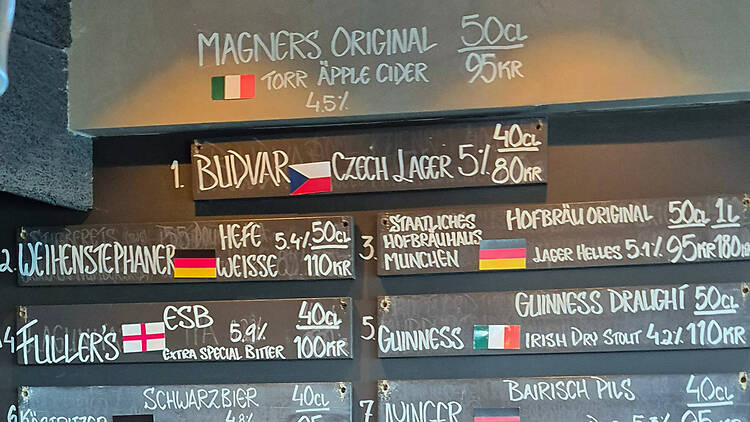 MAGNERS ORIGINAL 50CL
TORR ÄPPLE CIDER 95KR
4.5%
1. BUDVAR CZECH LAGER 5% 40CL
80KR
2. WEIHENSTEPHANER HEFE WEISSE 5.4% 50CL
110KR
3. STAATLICHES HOFBRÄUHAUS MUNCHEN HOFBRÄU ORIGINAL 50CL 1L
LAGER HELLES 5.1% 95KR 180
4. FULLER'S ESB 5.9% 40CL
EXTRA SPECIAL BITTER 100KR
5. GUINNESS GUINNESS DRAUGHT 50CL
IRISH DRY STOUT 4.2% 110KR
6. SCHWARZBIER 40CL
4.8% 95
7. BAIRISCH PILS 40CL